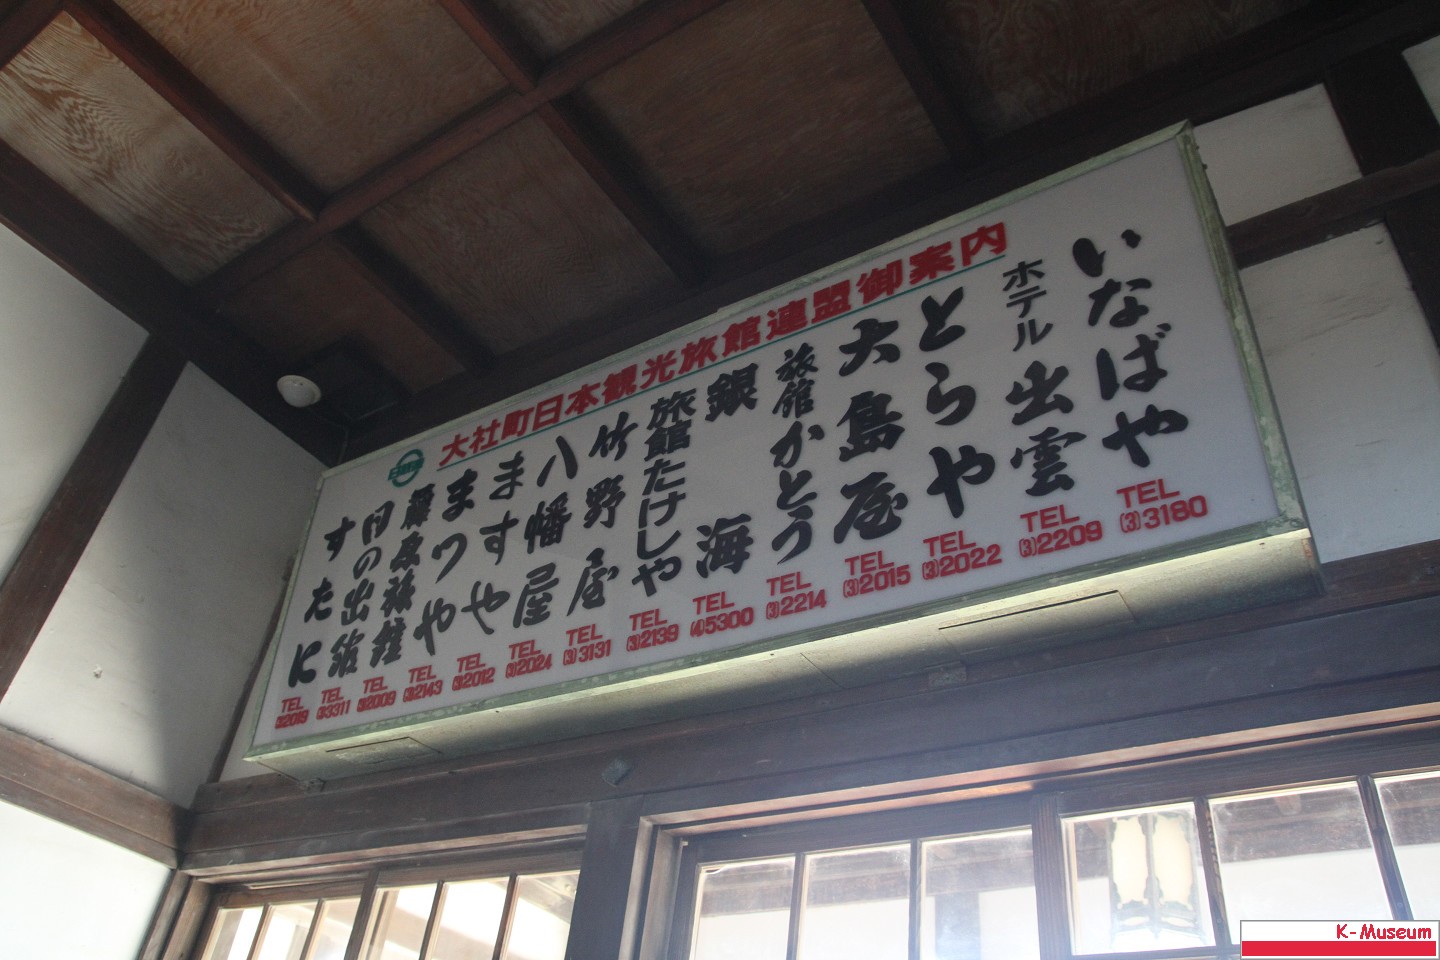 大社町日本観光旅館連盟御案内
いなばや
TEL
(3)3180
ホテル 出雲
TEL
(3)2209
とらや
TEL
(3)2022
大島屋
TEL
(3)2015
旅館かとう
TEL
(3)2214
銀海
TEL
(4)5300
旅館たけしや
TEL
(3)2139
竹野屋
TEL
(3)3131
八幡屋
TEL
(3)2024
ますや
TEL
(3)2012
まつや
TEL
(3)2143
藤原旅館
TEL
(3)2009
日の出館
TEL
(3)3311
すたに
TEL
(3)2019
K-Museum